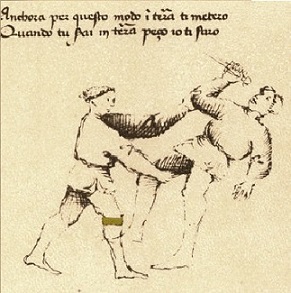 Anchora per questo modo ī terra ti metero
Quando tu sai in terra pezo io ti faro